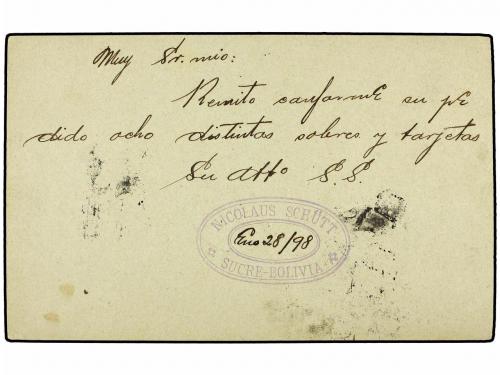 Muy Sr. mio:
Remito conforme su pe
dido ocho distintas sobres y tarjetas
Su Atto S. S.
NICOLAUS SCHÜTT
Eno 28/98
SUCRE-BOLIVIA.